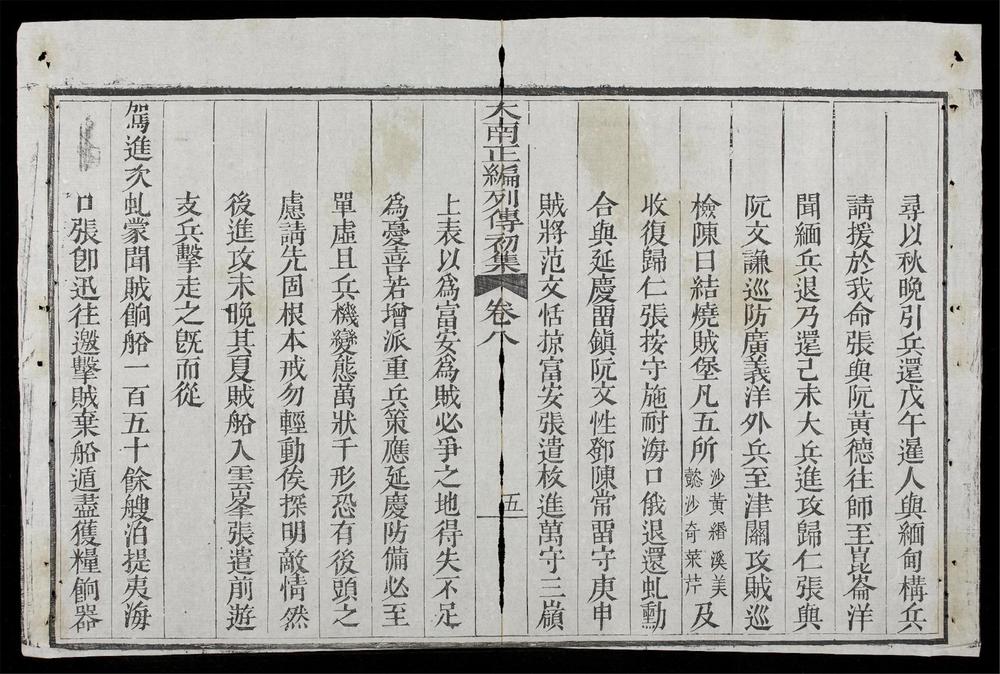 尋以秋晚引兵還戊午暹人與緬甸構兵
請援於我命張與阮黃德往師至崑崙洋
聞緬兵退乃還己未大兵進攻歸仁張與
阮文謙巡防廣義洋外兵至津關攻賊巡
檢陳曰結燒賊堡凡五所沙黃緡溪美懿沙奇菜芹及
收復歸仁張按守施耐海口俄退還虬勳
合與延慶畱鎮阮文性鄧陳常畱守庚申
賊將范文恬掠富安張遣核進萬守三嶺
大南正編列傳初集 卷八 五
上表以為富安為賊必爭之地得失不足
為憂喜若增派重兵策應延慶防備必至
單虛且兵機變態萬狀千形恐有後頭之
慮請先固根本戒勿輕動俟探明敵情然
後進攻未晚其夏賊船入雲峯張遣前遊
支兵擊走之既而從
駕進次虬蒙聞賊餉船一百五十餘艘泊提夷海
口張卽迅往邀擊賊棄船遁盡獲糧餉器